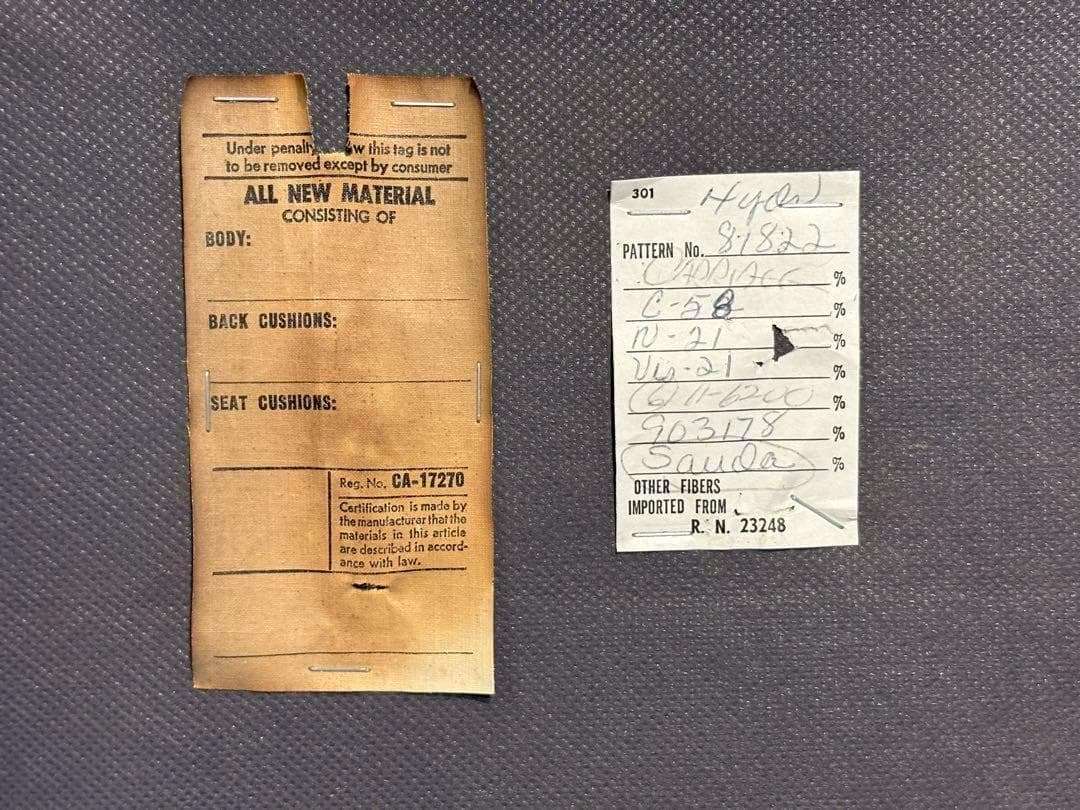 Under penalty w this tag is not
to be removed except by consumer
ALL NEW MATERIAL
CONSISTING OF
BODY:
BACK CUSHIONS:
SEAT CUSHIONS:
Reg. No. CA-17270
Certification is made by
the manufacturer that the
materials in this article
are described in accord-
ance with law.
301
PATTERN No. 81822
%
C-58 %
N-21 %
Vis-21 %
%
903178 %
%
OTHER FIBERS
IMPORTED FROM
R. N. 23248